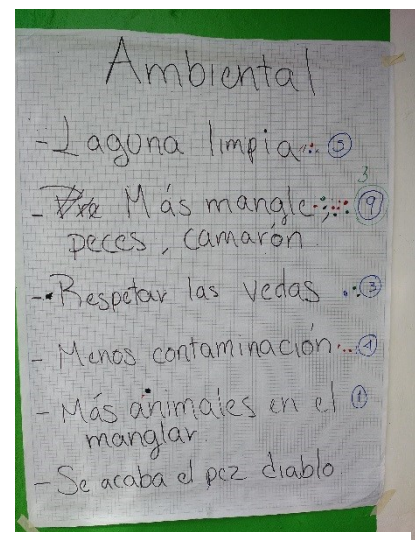 Ambiental
- Laguna limpia 5
3
- Más mangle, 9
peces, camarón
- Respetar las vedas 3
- Menos contaminación 4
- Más animales en el 1
manglar.
- Se acaba el pez diablo